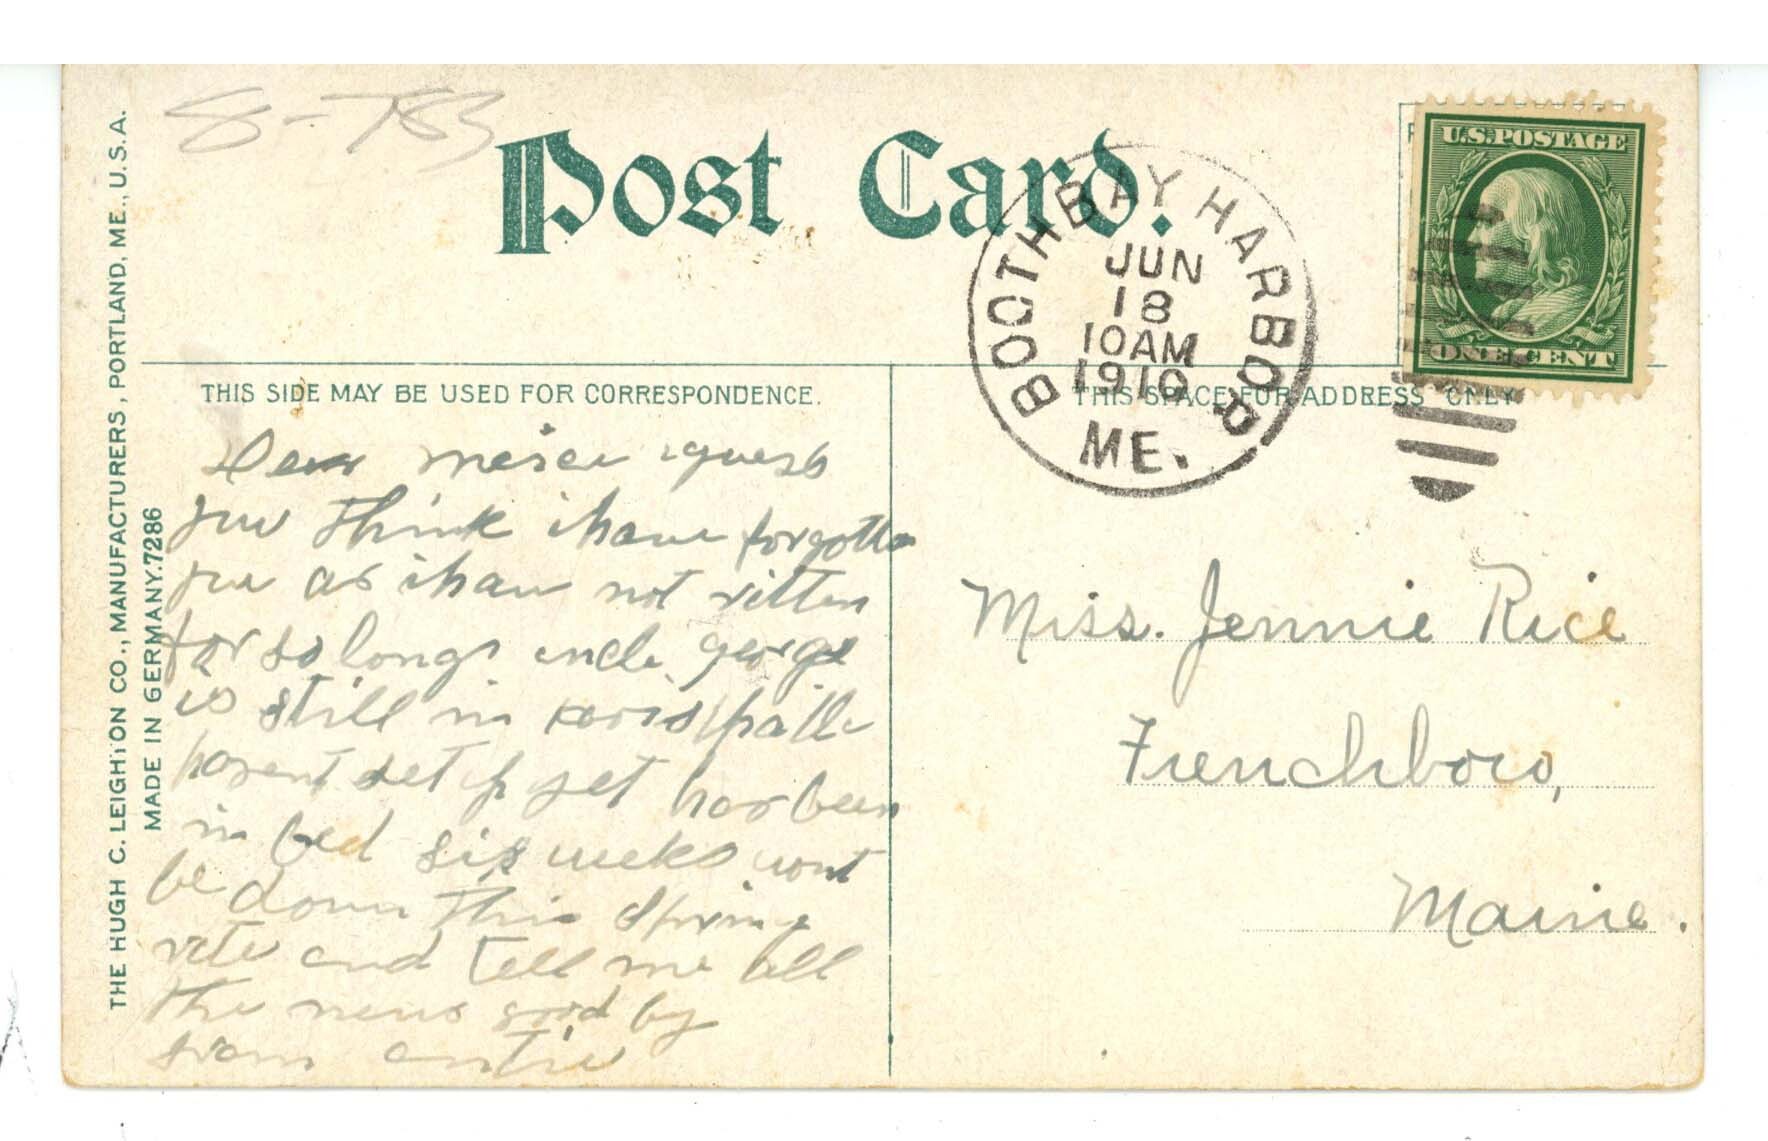 8-783
Post Card.
U.S. POSTAGE
ONE CENT
BOOTHBAY HARBOR
JUN
18
10AM
1910
ME.
THE HUGH C. LEIGHTON CO., MANUFACTURERS, PORTLAND, ME., U.S.A.
MADE IN GERMANY. 7286
THIS SIDE MAY BE USED FOR CORRESPONDENCE.
Dear i guess
you think i have forgotten
you as i have not ritten
for so long uncle george
is still in
havent set up yet has been
in bed six weeks wont
be down this spring
rite and tell me all
the news good by
from
THIS SPACE FOR ADDRESS ONLY
Miss. Jennie Rice
Frenchboro,
Maine.